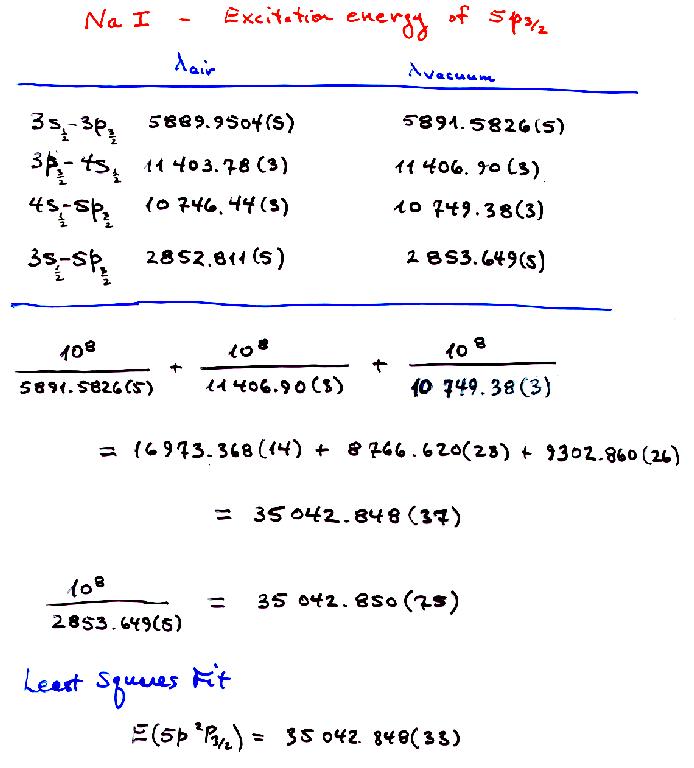 Na I - Excitation energy of 5p3/2
λair λvacuum
3s1/2-3p3/2 5889.9504(5) 5891.5826(5)
3p3/2-4s1/2 11 403.78(3) 11 406.90(3)
4s1/2-5p3/2 10 746.44(3) 10 749.38(3)
3s1/2-5p3/2 2852.811(5) 2 853.649(5)
10^8/5891.5826(5) + 10^8/11 406.90(3) + 10^8/10 749.38(3)
= 16973.368(14) + 8 766.620(23) + 9302.860(26)
= 35 042.848(37)
10^8/2853.649(5) = 35 042.850(75)
Least Squares Fit
E(5p ²P3/2) = 35 042.848(33)